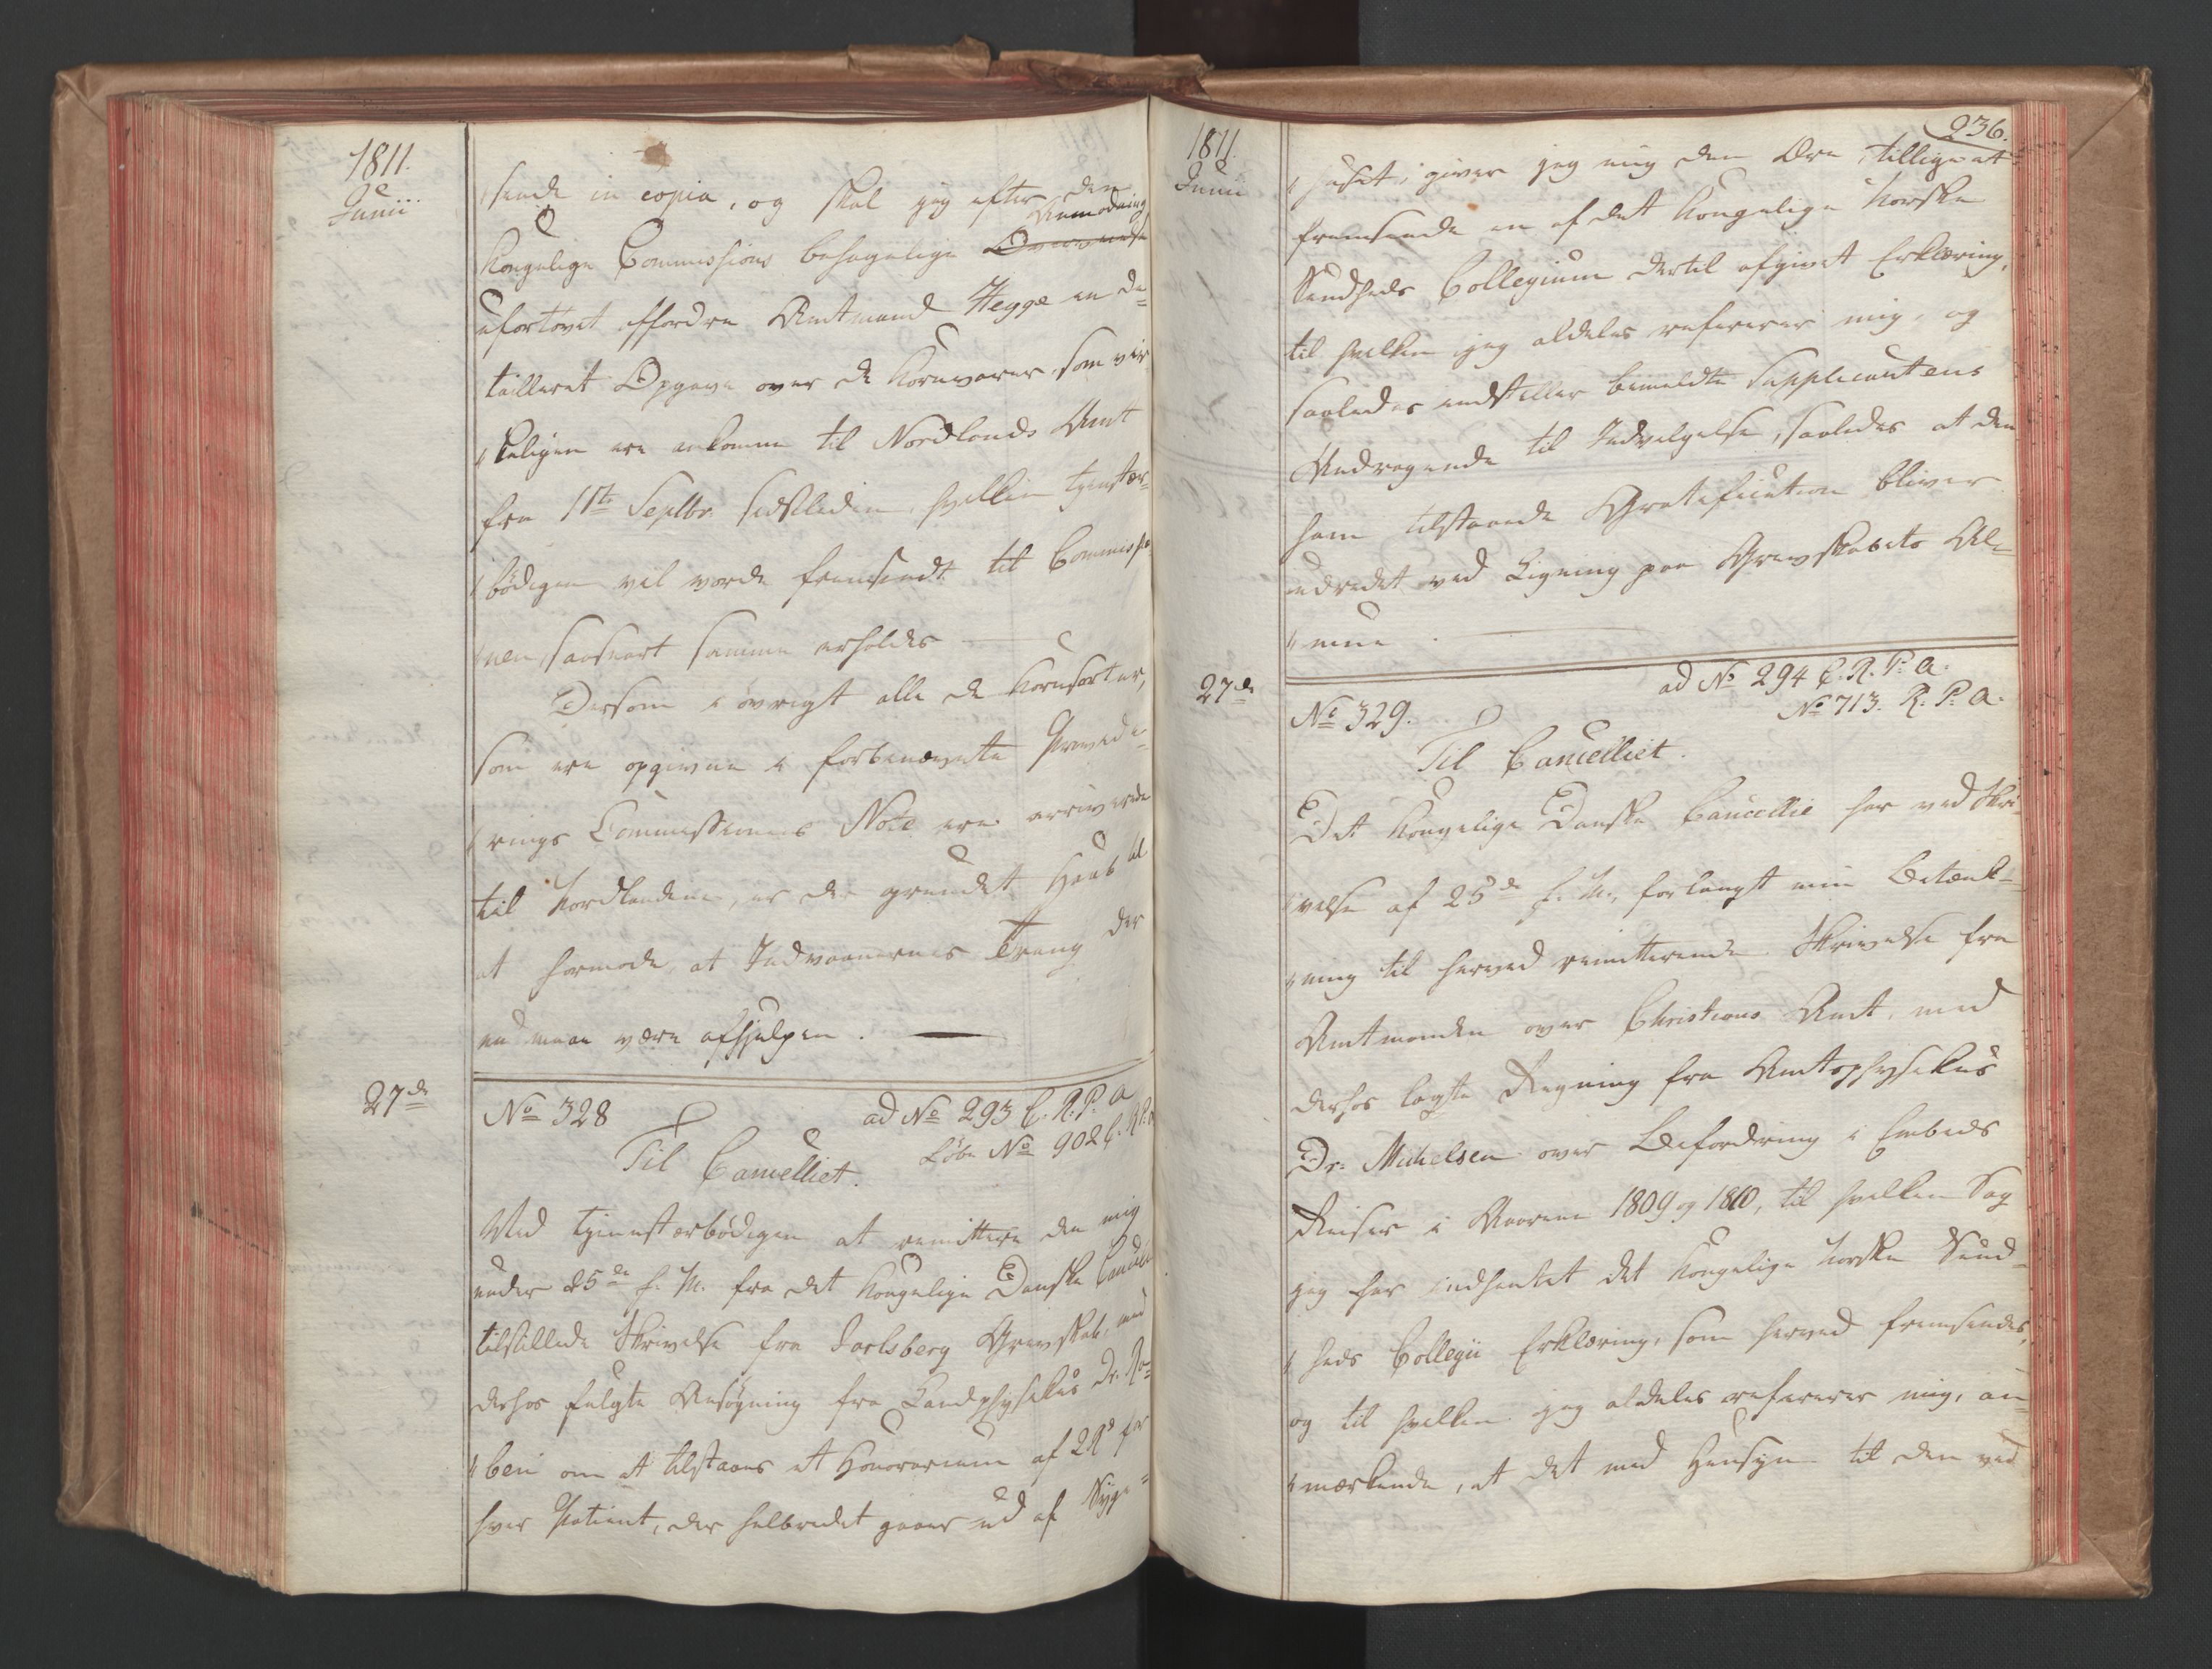 1811.
Junii
sende in copia, og skal jeg efter den
Kongelige Commissions behagelige Anmodning
ufortøvet affordre Amtmand Hegge en de-
tailleret Opgave over de Kornvarer, som vir-
keligen ere ankomne til Nordlands Amt
fra 1ste Septbr. sidstleden, hvilken tienstær-
bødigen vil vorde fremsendt til Commissio-
nen, saasnart samme erholdes
Dersom i øvrigt alle de Kornsorter,
som ere opgivne i forbenævnte Provede-
rings Commissionens Note ere arriverede
til Nordlandene, er der grundet Haab til
at formode, at Indvaanernes Trang der
nu maae være afhjulpen.
27de
No 328
ad No 293 C. R. P. A
Løbe No 902 C. R. P. A
Til Cancelliet.
Ved tienstærbødigen at remittere den mig
under 25de f. M. fra det Kongelige Danske Cancelli
tilstillede Skrivelse fra Jarlsberg Grevskab, med
derhos fulgte Ansøgning fra Landphysikus Dr. Ro-
ben om at tilstaaes et Honorarium af 2 Rd for
hver Patient, der helbredet gaaer ud af Syge-
236.
1811.
Junii
huset, giver jeg mig den Ære tillige at
fremsende en af det Kongelige Norske
Sundheds Collegium dertil afgivet Erklæring,
til hvilken jeg aldeles refererer mig, og
saaledes indstiller bemeldte Supplicantens
Andragende til Indvilgelse, saaledes at den
ham tilstaaede Gratification bliver
udredet ved Ligning paa Grevskabets Al-
mue
27de
No 329.
ad No 294 C. R. P. A.
No 713. R. P. A.
Til Cancelliet.
Det Kongelige Danske Cancellie har ved Skri-
velse af 25de f. M. forlangt min Betænk-
ning til herved remitterende Skrivelse fra
Amtmanden over Christians Amt, med
derhos lagte Regning fra Amtsphysikus
Dr. Michelsen over Befordring i Embeds
Reiser i Aarene 1809 og 1810, til hvilken Sag
jeg har indhentet det Kongelige Norske Sund-
heds Collegii Erklæring, som herved fremsendes,
og til hvilken jeg aldeles refererer mig, an-
mærkende, at det med Hensyn til den ved